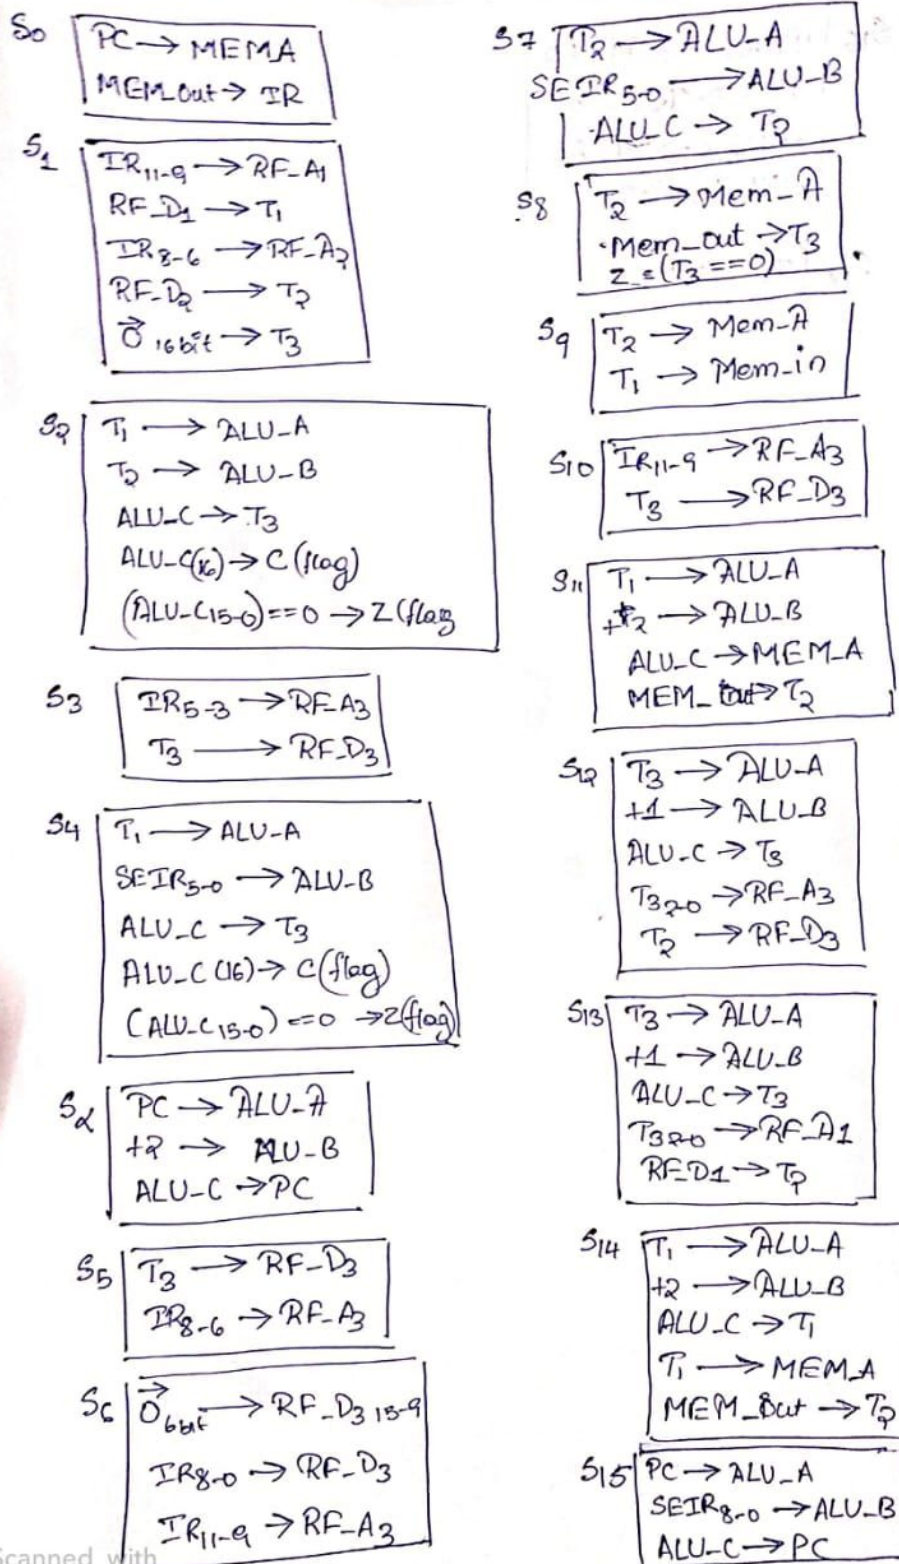 S0
PC → MEM_A
MEM_out → IR
S1
IR11-9 → RF_A1
RF_D1 → T1
IR8-6 → RF_A2
RF_D2 → T2
0⃗ 16bit → T3
S2
T1 → ALU_A
T2 → ALU_B
ALU_C → T3
ALU_C(16) → C (flag)
(ALU_C15-0)==0 → Z (flag
S3
IR5-3 → RF_A3
T3 → RF_D3
S4
T1 → ALU_A
SEIR5-0 → ALU_B
ALU_C → T3
ALU_C(16) → C(flag)
(ALU_C15-0)==0 → Z(flag)
Sα
PC → ALU_A
+2 → ALU_B
ALU_C → PC
S5
T3 → RF_D3
IR8-6 → RF_A3
S6
0⃗ 6bit → RF_D3 15-9
IR8-0 → RF_D3
IR11-9 → RF_A3
Scanned with
S7
T2 → ALU_A
SEIR5-0 → ALU_B
ALU_C → T2
S8
T2 → Mem_A
Mem_out → T3
Z = (T3==0)
S9
T2 → Mem_A
T1 → Mem_in
S10
IR11-9 → RF_A3
T3 → RF_D3
S11
T1 → ALU_A
+2 → ALU_B
ALU_C → MEM_A
MEM_out → T2
S12
T3 → ALU_A
+1 → ALU_B
ALU_C → T3
T3 2-0 → RF_A3
T2 → RF_D3
S13
T3 → ALU_A
+1 → ALU_B
ALU_C → T3
T3 2-0 → RF_A1
RF_D1 → T2
S14
T1 → ALU_A
+2 → ALU_B
ALU_C → T1
T1 → MEM_A
MEM_Out → T2
S15
PC → ALU_A
SEIR8-0 → ALU_B
ALU_C → PC